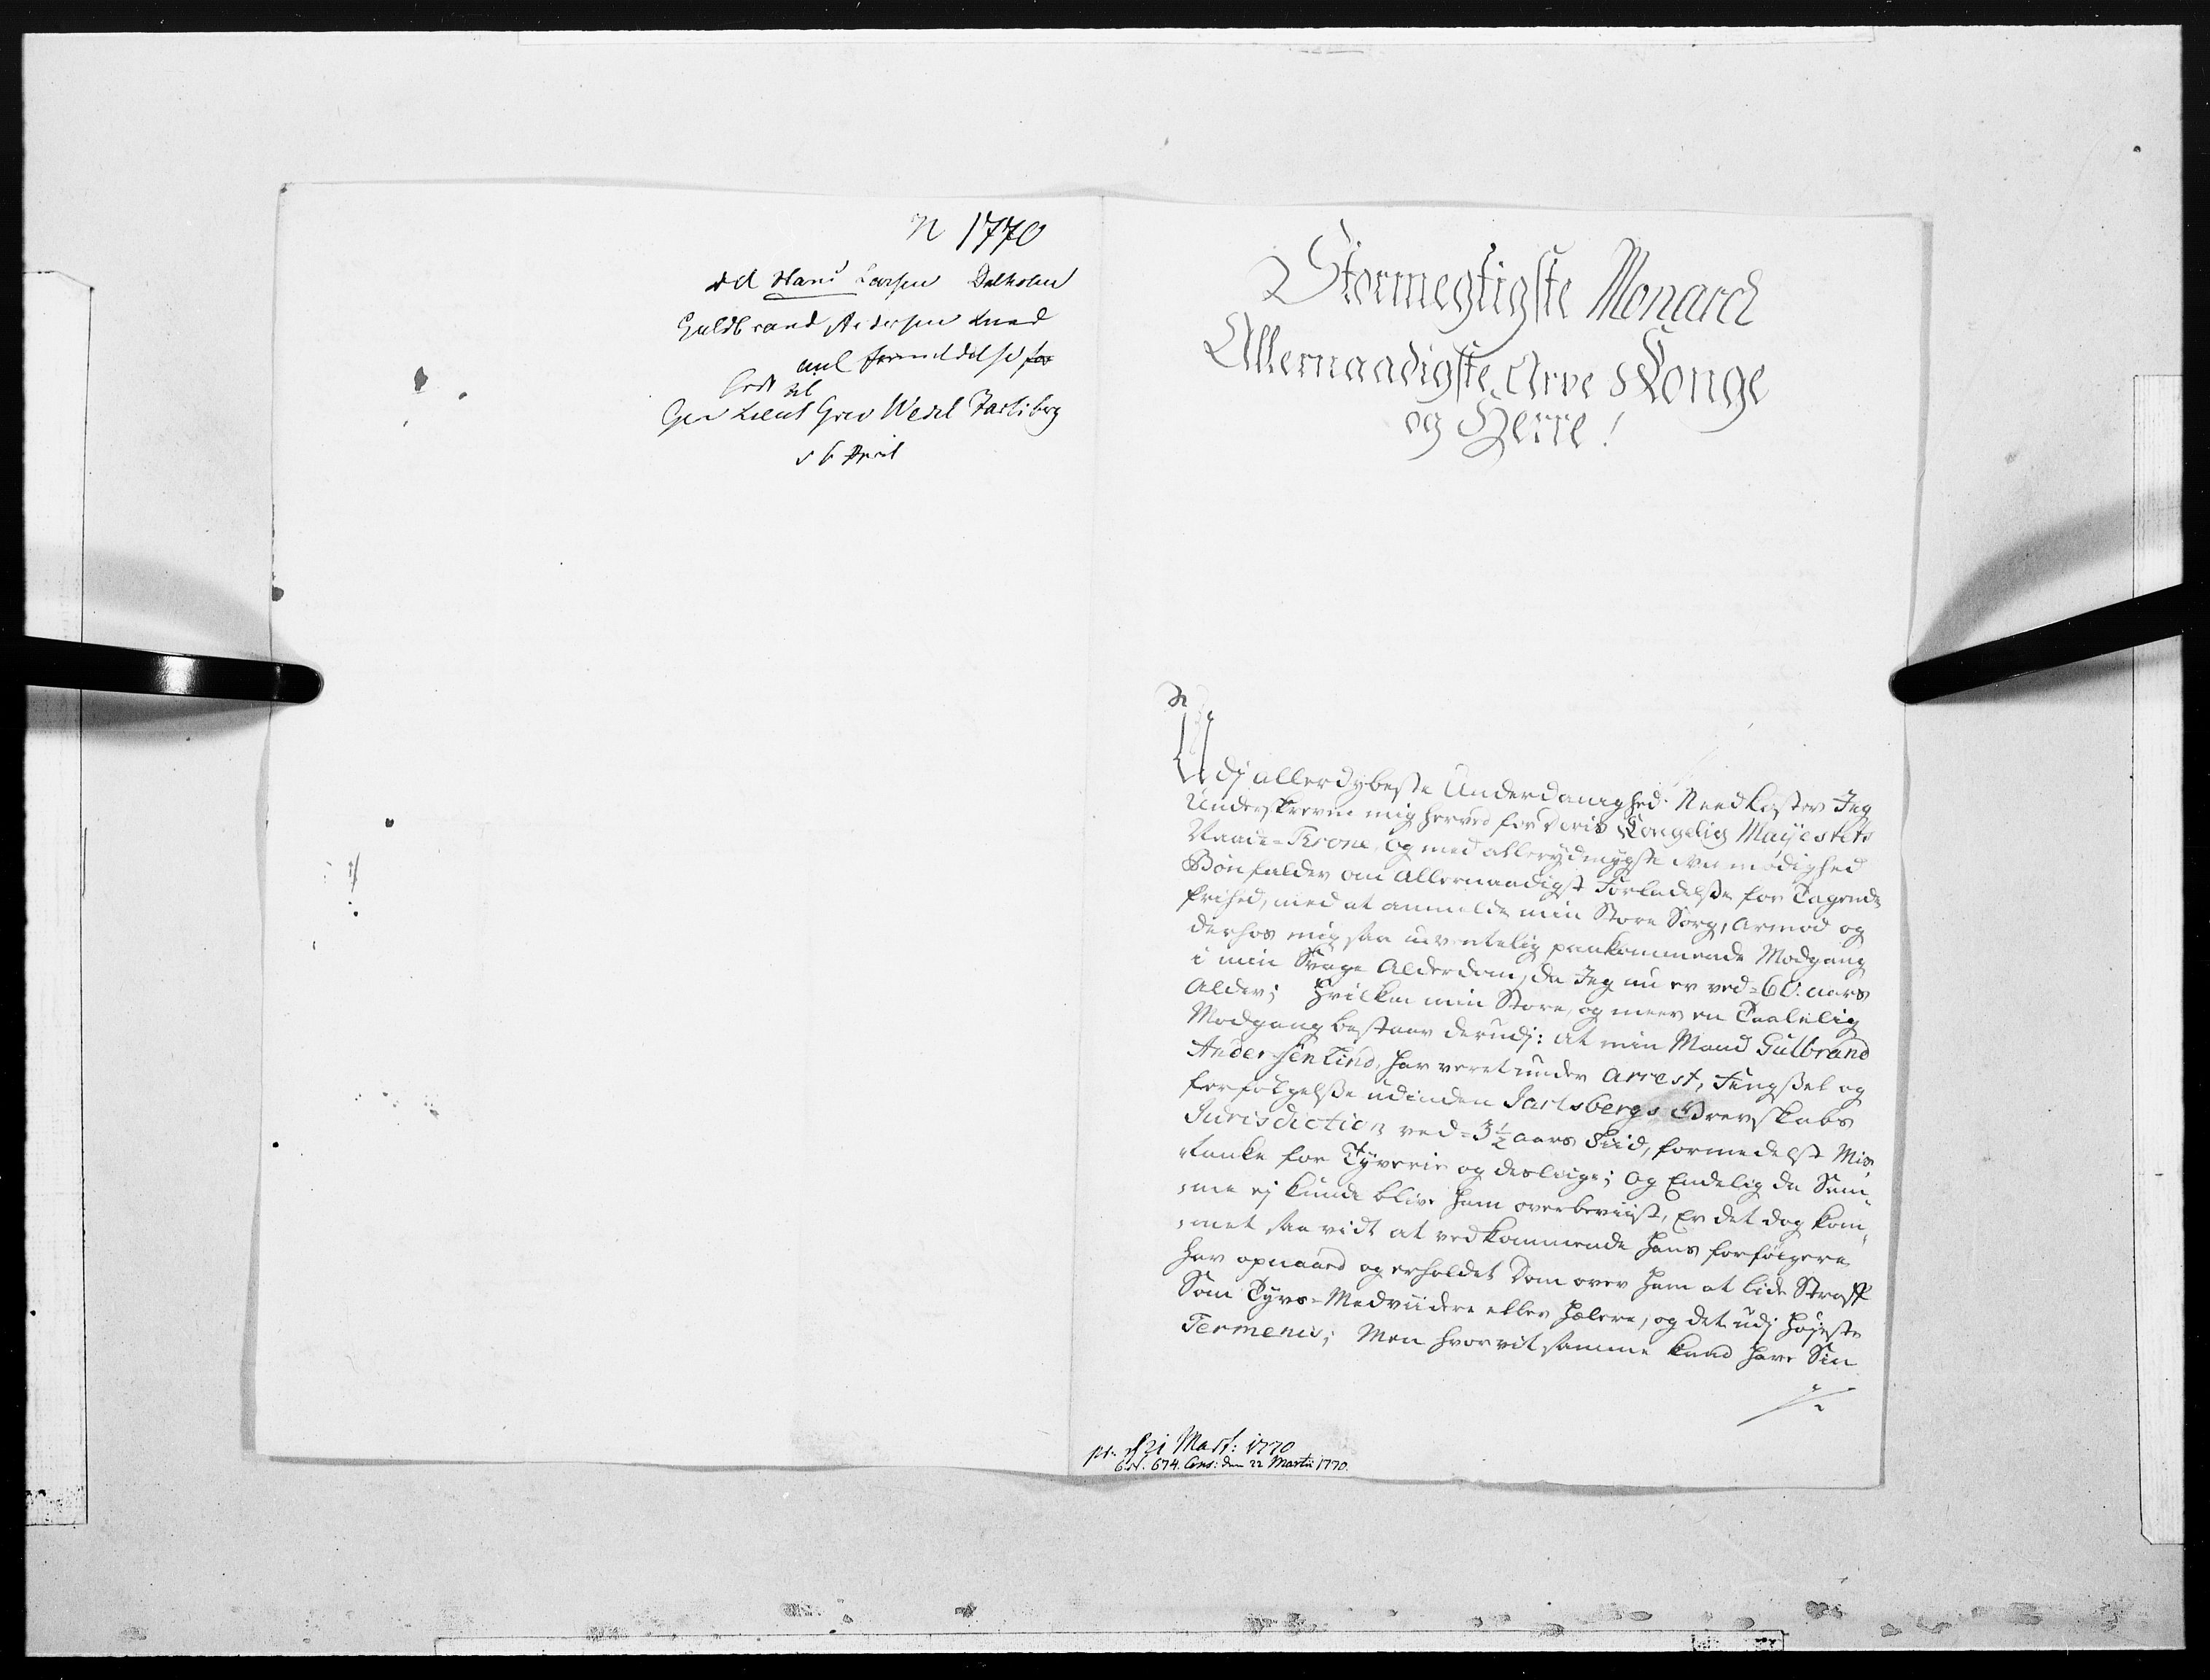 N 1770
Hans Larsen Dalholen
Guldbrand Andersen Lund
anl formeldelse for
brev til
Gen Lieut Grev Wedel Jarlsberg
d 6 April
Stormegtigste Monarch
Allernaadigste Arve Konge
og Herre!
Udj allerdybeste Underdanighed Needkaster Jeg
Underskrevne mig herved for Deris Kongelig Mayestets
Naade-Trone, og med allerydmygste vemodighed
Bønfalder om Allernaadigst Forladelse for Tagende
frihed, med at anmelde min Store Sorg, Armod og
derhos mig saa uventelig paakommende Modgang
i min Svage Alderdom, da Jeg nu er ved-60. aars
Alder; Hvilken min Store, og meer en Taalelig
Modgang bestaar derudj: at min Mand Gulbrand
Andersen Lind, har veret under Arrest, Fengsel og
forfølgelse udinden Jarlsbergs Grevskabs
Jurisdiction ved-3½ aars Tiid, formedelst Mis
tanke for Tyverie og deslige; og Endelig da Sam-
me ej kunde blive ham overbeviist, Er det dog kom-
met saa vidt at vedkommende hans forfølgere
har opnaaed og erholdet Dom over ham at lide Straff
Som Tyvs-Medviidere eller Hælere, og det udj høyeste
Termenis; Men hvorvit samme kand have Sin
pr. d 21 Mart: 1770
674. Cons: den 22 Martii 1770.